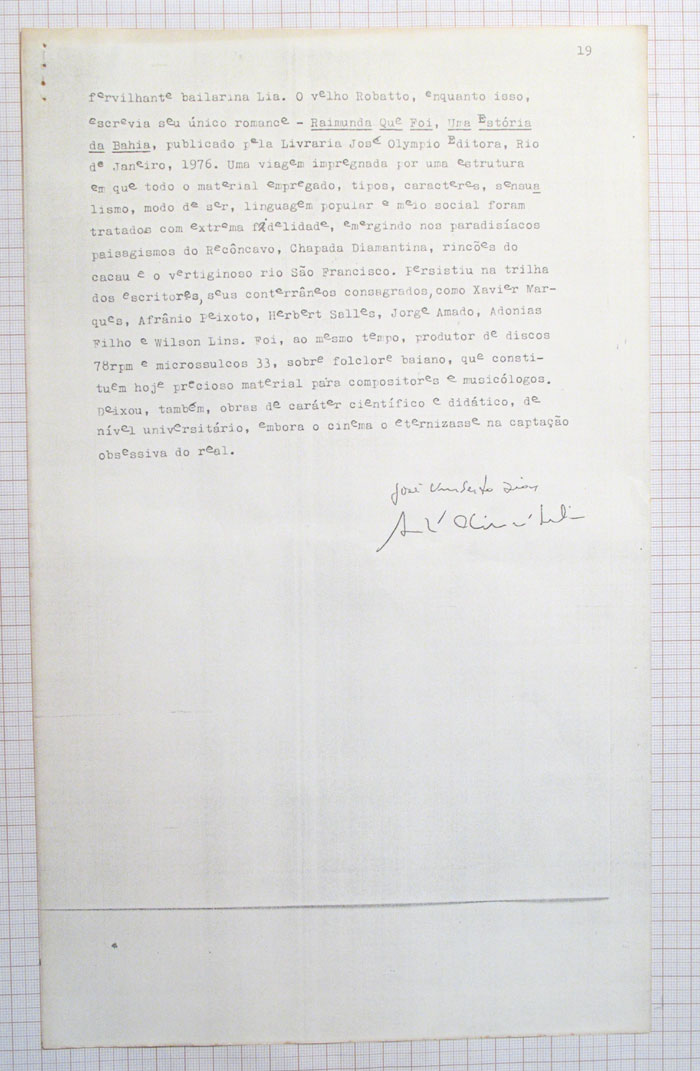 19
fervilhante bailarina Lia. O velho Robatto, enquanto isso,
escrevia seu único romance - Raimunda Que Foi, Uma Estória
da Bahia, publicado pela Livraria José Olympio Editora, Rio
de Janeiro, 1976. Uma viagem impregnada por uma estrutura
em que todo o material empregado, tipos, caracteres, sensua
lismo, modo de ser, linguagem popular e meio social foram
tratados com extrema fidelidade, emergindo nos paradisíacos
paisagismos do Recôncavo, Chapada Diamantina, rincões do
cacau e o vertiginoso rio São Francisco. Persistiu na trilha
dos escritores, seus conterrâneos consagrados, como Xavier Mar-
ques, Afrânio Peixoto, Herbert Salles, Jorge Amado, Adonias
Filho e Wilson Lins. Foi, ao mesmo tempo, produtor de discos
78rpm e microssulcos 33, sobre folclore baiano, que consti-
tuem hoje precioso material para compositores e musicólogos.
Deixou, também, obras de caráter científico e didático, de
nível universitário, embora o cinema o eternizasse na captação
obsessiva do real.
José Umberto Dias